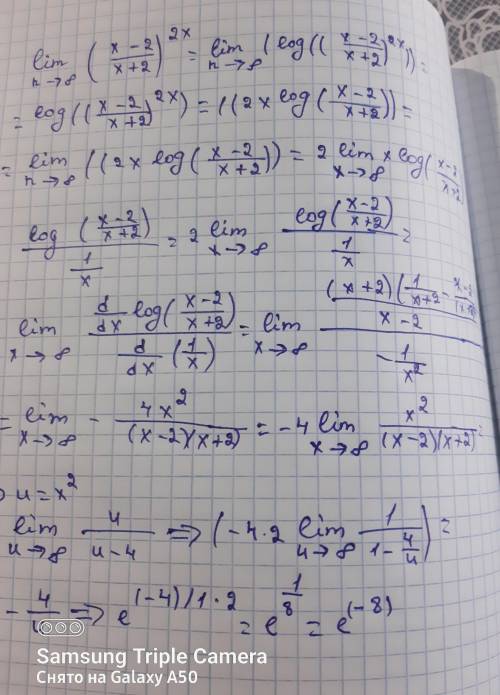 lim n→∞ ((x-2)/(x+2))^2x = lim n→∞ (log(((x-2)/(x+2))^2x)) =
= log(((x-2)/(x+2))^2x) = ((2x log((x-2)/(x+2))) =
= lim n→∞ ((2x log((x-2)/(x+2))) = 2 lim x→∞ x log(
log((x-2)/(x+2)) / (1/x) = 2 lim x→∞ log((x-2)/(x+2)) / (1/x) =
lim x→∞ (d/dx log((x-2)/(x+2))) / (d/dx (1/x)) = lim x→∞ ((x+2)(1/(x+2) - / (x-2)) / (-1/x²)
= lim x→∞ - 4x²/((x-2)(x+2)) = -4 lim x→∞ x²/((x-2)(x+2)) =
u = x²
lim u→∞ u/(u-4) => (-4·2 lim u→∞ 1/(1 - 4/u)) =
- 4/ => e^(-4)/1·2 = e^1/8 = e^(-8)
Samsung Triple Camera
Снято на Galaxy A50